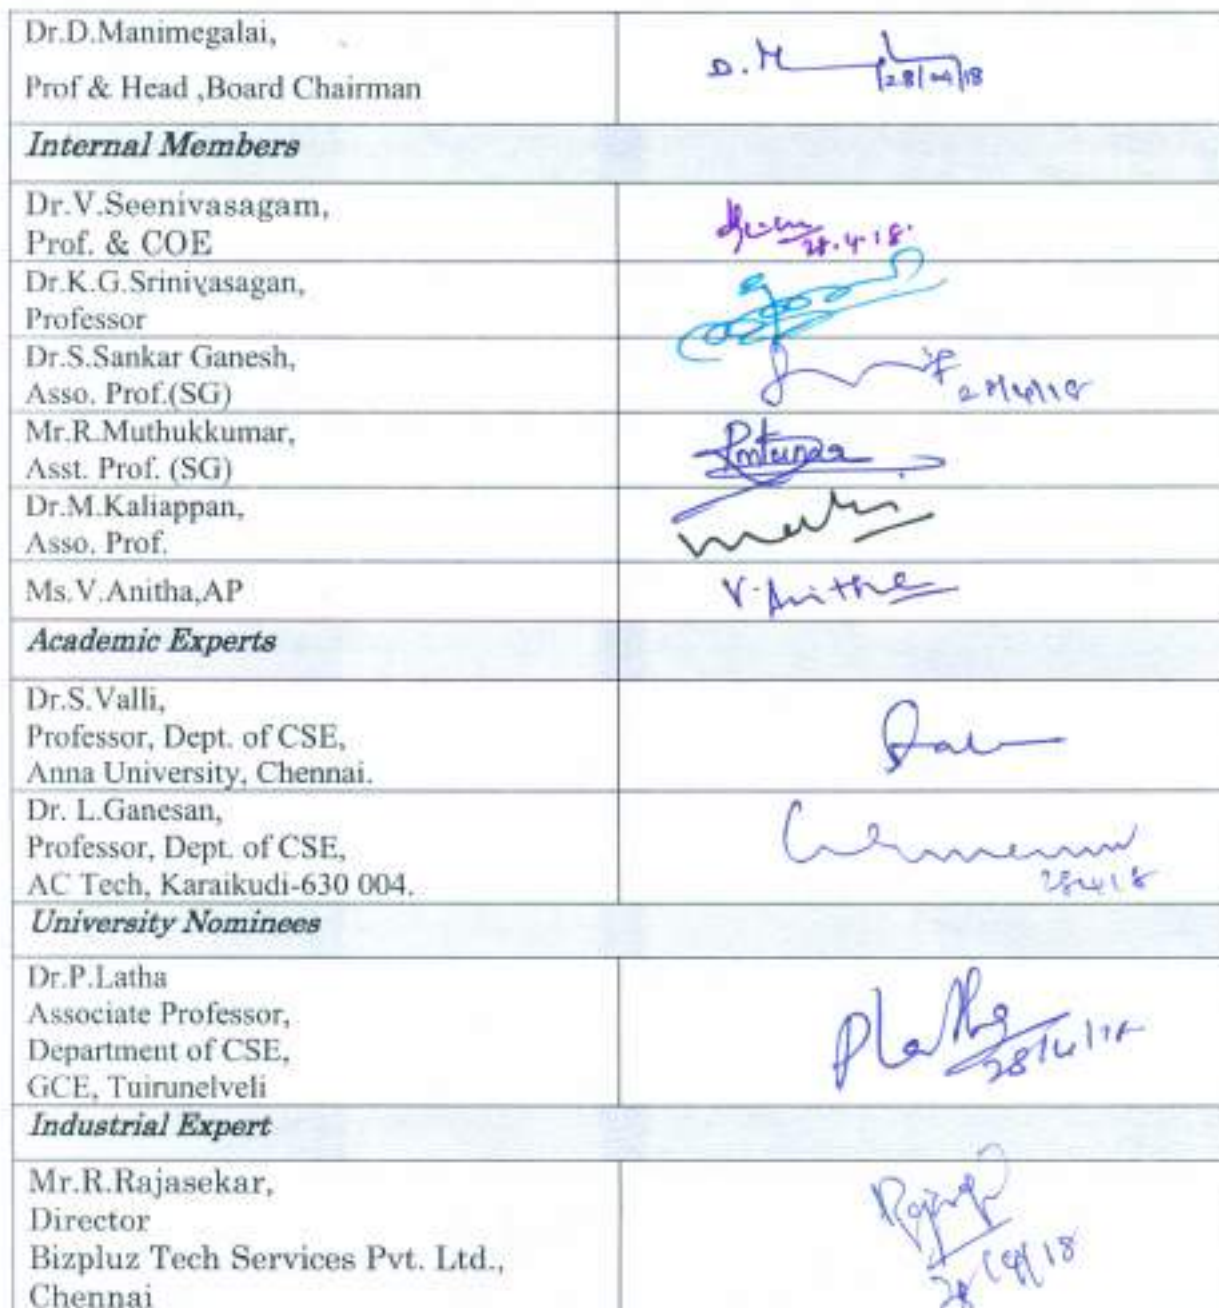 Dr.D.Manimegalai,
Prof & Head ,Board Chairman
D. M 28/04/18
Internal Members
Dr.V.Seenivasagam,
Prof. & COE
28.4.18.
Dr.K.G.Srinivasagan,
Professor
Dr.S.Sankar Ganesh,
Asso. Prof.(SG)
28/4/18
Mr.R.Muthukkumar,
Asst. Prof. (SG)
Dr.M.Kaliappan,
Asso. Prof.
Ms.V.Anitha,AP
V.Anitha
Academic Experts
Dr.S.Valli,
Professor, Dept. of CSE,
Anna University, Chennai.
Dr. L.Ganesan,
Professor, Dept. of CSE,
AC Tech, Karaikudi-630 004.
28418
University Nominees
Dr.P.Latha
Associate Professor,
Department of CSE,
GCE, Tuirunelveli
PLatha
28/4/18
Industrial Expert
Mr.R.Rajasekar,
Director
Bizpluz Tech Services Pvt. Ltd.,
Chennai